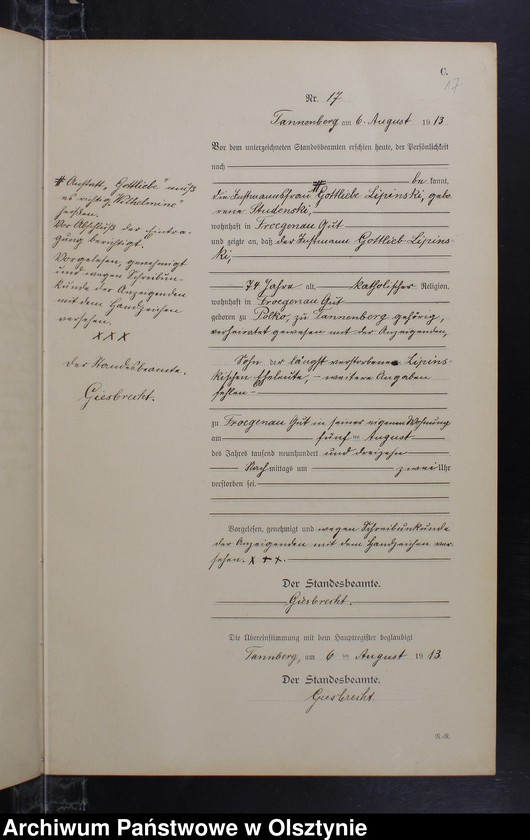 C.
17
Nr. 17
Tannenberg am 6. August 1913.
Vor dem unterzeichneten Standesbeamten erschien heute, der Persönlichkeit
nach
be kannt,
die Instmannsfrau # Gottliebe Lipinski, gebo-
rene Studenski,
wohnhaft in Froegenau Gut
und zeigte an, daß der Instmann Gottlieb Lipins-
ki,
74 Jahre alt, katholischer Religion,
wohnhaft in Froegenau Gut
geboren zu Polko, zu Tannenberg gehörig,
verheiratet gewesen mit der Anzeigenden,
Sohn der längst verstorbenen Lipins-
kischen Eheleute, - weitere Angaben
fehlen -
zu Froegenau Gut in seiner eigenen Wohnung
am fünften August
des Jahres tausend neunhundert und dreizehn
Nachmittags um zwei Uhr
verstorben sei.
Vorgelesen, genehmigt und wegen Schreibunkunde
der Anzeigenden mit dem Handzeichen ver-
sehen. x + +.
Der Standesbeamte.
Giesbrecht.
Die Übereinstimmung mit dem Hauptregister beglaubigt
Tannberg, am 6 ten August 1913.
Der Standesbeamte.
Giesbrecht.
R.-R.
# Anstatt "Gottliebe" muß
es richtig "Wilhelmine"
heißen.
Vor Abschluß der Eintra-
gung berichtigt.
Vorgelesen, genehmigt
und wegen Schreibun-
kunde der Anzeigenden
mit dem Handzeichen
versehen.
x x x
Der Standesbeamte.
Giesbrecht.
Archiwum Państwowe w Olsztynie